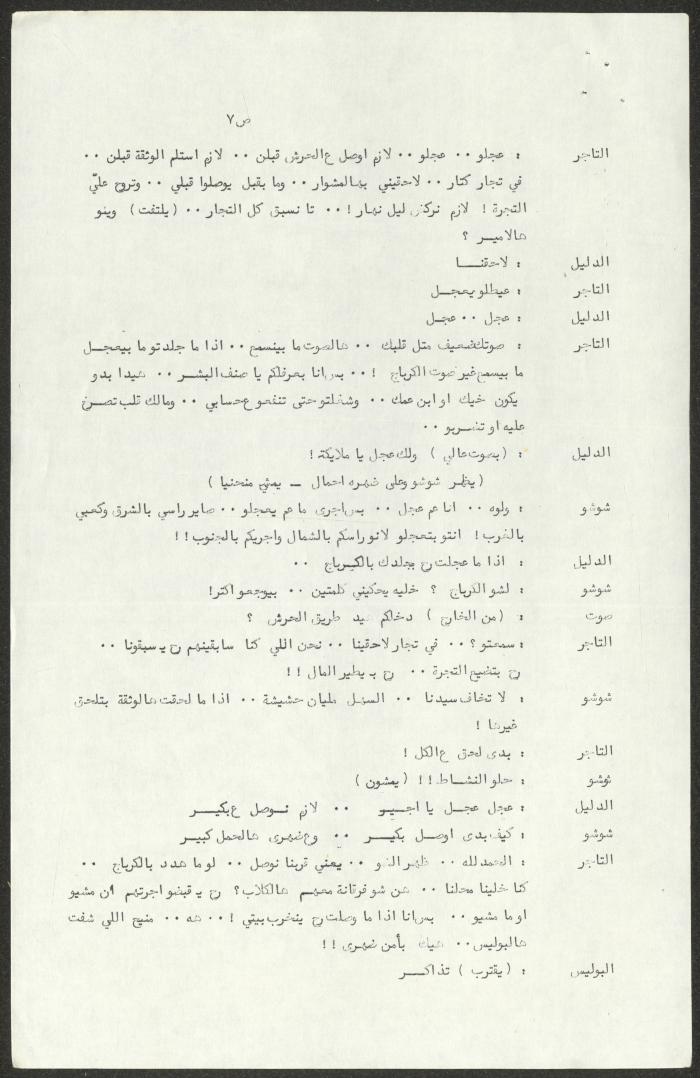 ص ٧
التاجر : عجلو ٠٠ عجلو ٠٠ لازم اوصل ع الحرش قبلن ٠٠ لازم استلم الوثقة قبلن ٠٠
في تجار كتار ٠٠ لاحقيني بهالمشوار ٠٠ وما بقبل يوصلوا قبلي ٠٠ وتروح عليّ
التجرة ! لازم نركض ليل نهار ! ٠٠ تا نسبق كل التجار ٠٠ ( يلتفت ) وينو
هالاميـر ؟
الدليل : لاحقنـــا
التاجر : عيطلو يعجــل
الدليل : عجل ٠٠ عجـل
التاجر : صوتك ضعيف متل قلبك ٠٠ هالصوت ما بينسمع ٠٠ اذا ما جلدتو ما بيعجــل
ما بيسمع غير صوت الكرباج ! ٠٠ بس انا بعرفلكم يا صنف البشـر ٠٠ هيدا بدو
يكون خيك او ابن عمك ٠٠ وشغلتو حتى تنفعو ع حسابي ٠٠ ومالك قلب تصـرخ
عليه او تضـربو ٠٠
الدليل : ( بصوت عالي ) ولك عجل يا ملايكة !
( يظهـر شوشو وعلى ضهره احمال ــ يمشي منحنيا )
شوشو : ولوه ٠٠ انا عم عجل ٠٠ بس اجرى ما عم يعجلو ٠٠ صاير راسي بالشرق وكعبي
بالغرب ! انتو بتعجلو لانو راسكم بالشمال واجريكم بالجنوب ! !
الدليل : اذا ما عجلت رح بجلدك بالكـرباج ٠٠
شوشو : لشو الكرباج ؟ خليه يحكيني كلمتين ٠٠ بيوجعو اكتر !
صوت : ( من الخارج ) دخلكم هيد طريق الحرش ؟
التاجر : سمعتو ؟ ٠٠ في تجار لاحقينا ٠٠ نحن اللي كنا سابقينهم رح يسبقونا ٠٠
رح بتضيع التجرة ٠٠ رح بـ يطير المال ! !
شوشو : لا تخاف سيدنا ٠٠ السهـل مليان حشيشة ٠٠ اذا ما لحقت هالوثقة بتلحق
غيرها !
التاجر : بدى لحق ع الكل !
شوشو : حلو النشـاط ! ! ( يمشون )
الدليل : عجل عجـل يا اجـيـر ٠٠ لازم نـوصل ع بكيـر
شوشو : كيف بدى اوصل بكيـر ٠٠ وع ضهرى هالحمل كبير
التاجر : الحمد لله ٠٠ ظهر الضو ٠٠ يعني قربنا نوصل ٠٠ لو ما هدد بالكرباج ٠٠
كنا خلينا محلنا ٠٠ هن شو فرقانة معهـم هالكلاب ؟ رح يـ قبضو اجرتهم ان مشيو
او ما مشيو ٠٠ بس انا اذا ما وصلت رح ينخرب بيتي ! ٠٠ هه ٠٠ منيح اللي شفت
هالبوليس ٠٠ هيك بأمن ضهرى ! !
البوليس : ( يقترب ) تذاكــر